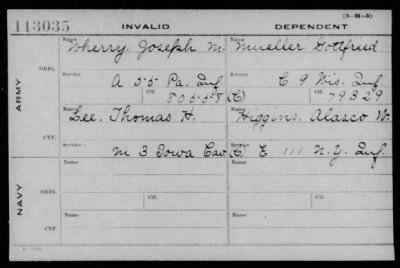 113035 INVALID DEPENDENT (3-811-5)
Name Name
Wherry, Joseph M. Mueller Gottfried
ORIG. Service Service
A 55 Pa. Inf. C 9 Wis. Inf.
Ctf. 805558 (C) Ctf. 79329
ARMY
Name Name
Lee, Thomas H. Higgins, Alasco W.
CTF. Service Service
M 3 Iowa Cav. (C) E 111 N.Y. Inf.
Name Name
NAVY
ORIG. Service Ctf. Service Ctf.
Name Name
CTF. Service Service